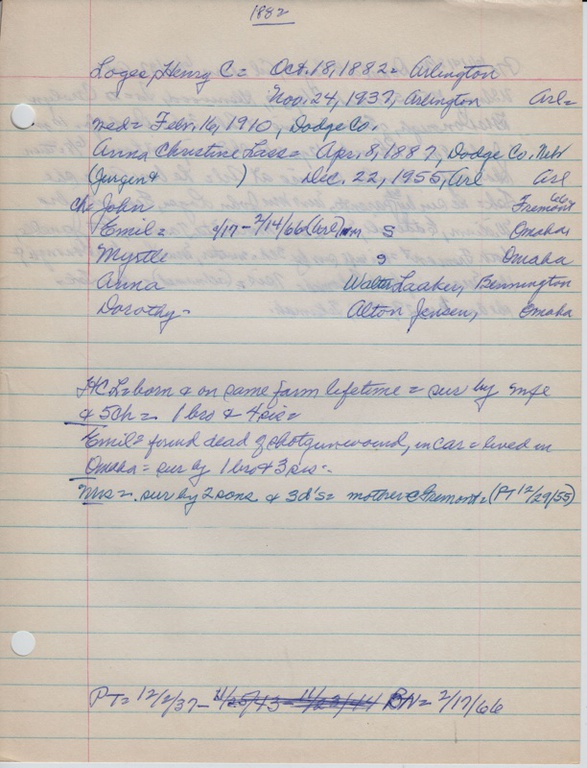 1882
Loges, Henry C = Oct. 18, 1882 = Arlington
Nov. 24, 1937, Arlington Arl=
med = Febr. 16, 1910, Dodge Co.
Anna Christine Lass = Apr. 8, 1887, Dodge Co. Nebr
(Jurgen & ) Dec. 22, 1955, Arl Arl
Ch = John Fremont
Emil = 1/17 - 2/14/66 (Arl) S Omaha
Myrtle S Omaha
Anna Walter Laaker, Bennington
Dorothy - Alton Jensen, Omaha
HCL = born & on same farm lifetime = sur by wife
& 5ch = 1 bro & 4 sis =
Emil = found dead of shotgun wound, in car = lived in
Omaha = sur by 1 bro & 3 sis -
Mrs = sur by 2 sons & 3 d's = mother Fremont = (PT 12/29/55)
PT = 12/2/37 - BN = 2/17/66